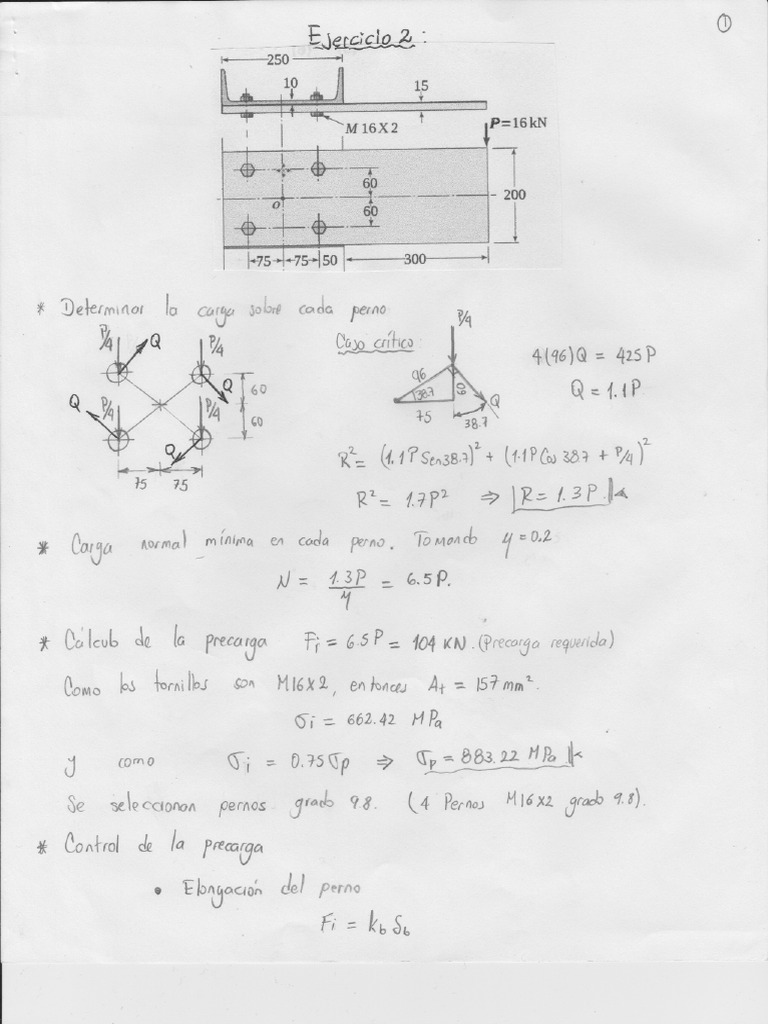 1
Ejercicio 2:
250
10
15
M 16 X 2
P = 16 kN
60
60
200
o
75 75 50 300
* Determinar la carga sobre cada perno
P/4 Q P/4
Q
Q P/4 P/4
Q
60
60
75 75
Caso crítico:
P/4
96
38.7
60
75
38.7
Q
4(96)Q = 425P
Q = 1.1P
R² = (1.1P Sen 38.7)² + (1.1P Cos 38.7 + P/4)²
R² = 1.7P² ⇒ R = 1.3P
* Carga normal mínima en cada perno. Tomando μ = 0.2
N = 1.3P/μ = 6.5P.
* Cálculo de la precarga Fi = 6.5P = 104 KN. (Precarga requerida)
Como los tornillos son M16X2, entonces At = 157 mm².
σi = 662.42 MPa
y como σi = 0.75σp ⇒ σp = 883.22 MPa
Se seleccionan pernos grado 9.8. (4 Pernos M16X2 grado 9.8).
* Control de la precarga
• Elongación del perno
Fi = kb δb